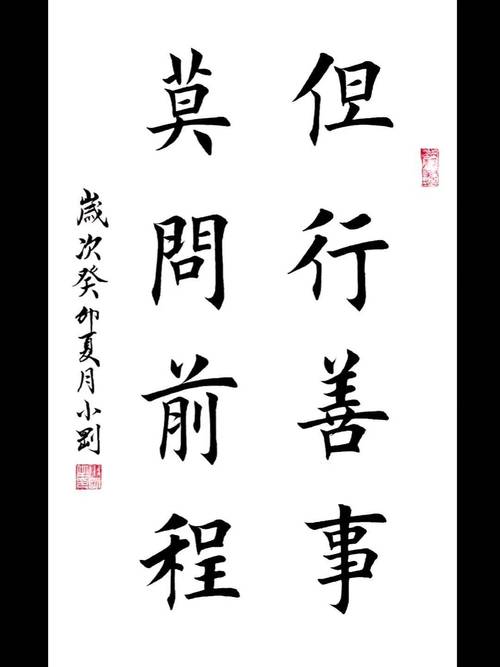 但行善事
莫問前程
歲次癸卯夏月小剛